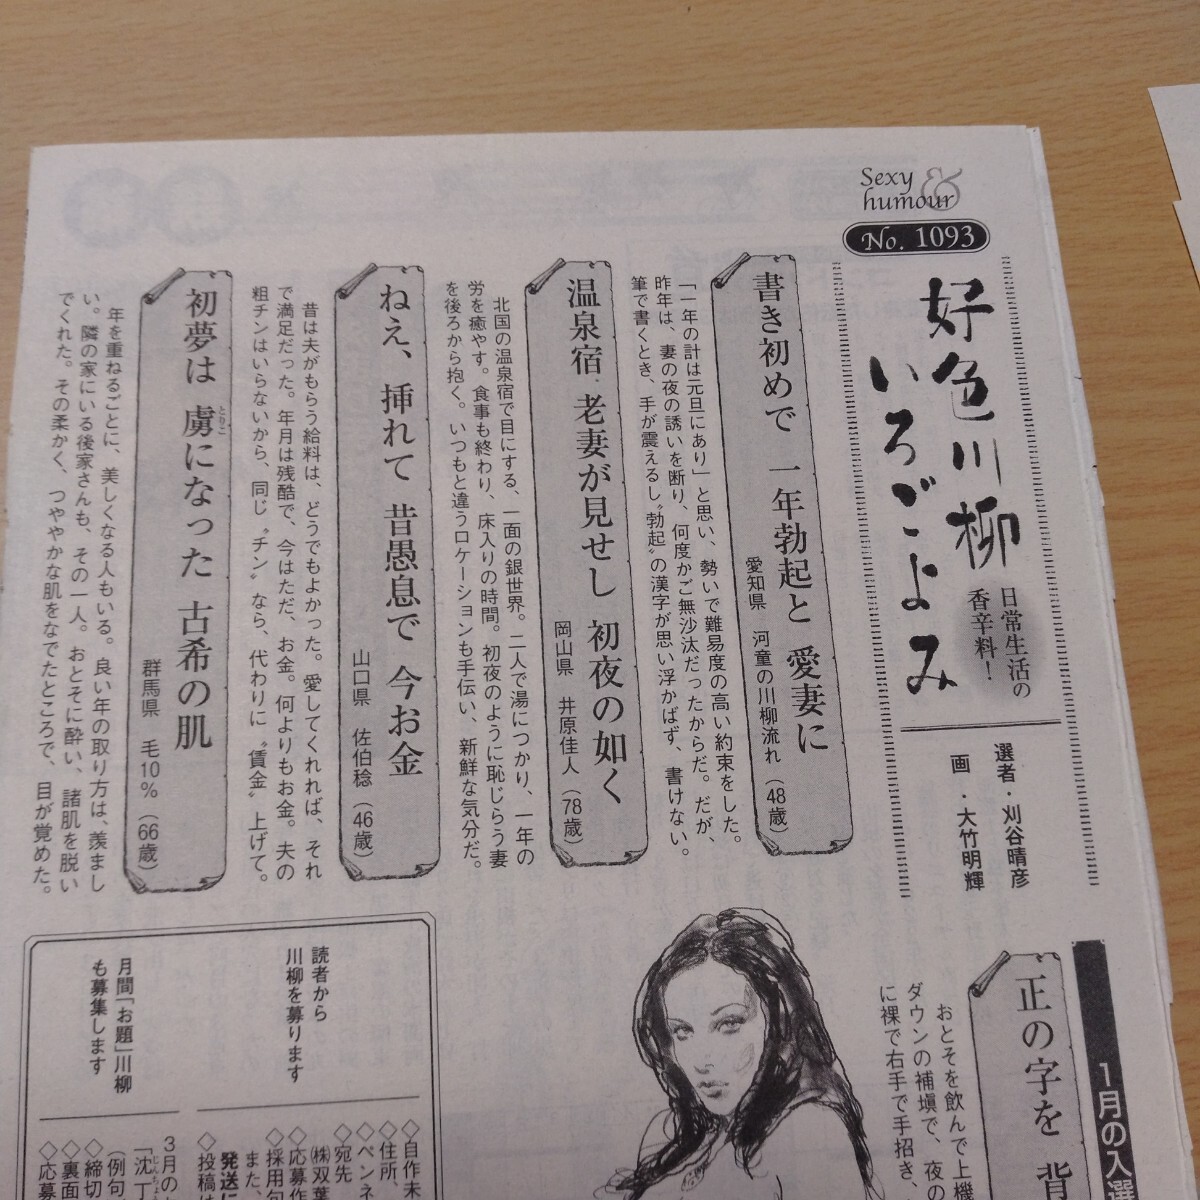 Sexy & humour
No. 1093
好色川柳
いろごよみ
日常生活の
香辛料!
選者・刈谷晴彦
画・大竹明輝
書き初めで 一年勃起と 愛妻に
愛知県 河童の川柳流れ（48歳）
「一年の計は元旦にあり」と思い、勢いで難易度の高い約束をした。
昨年は、妻の夜の誘いを断り、何度かご無沙汰だったからだ。だが、
筆で書くとき、手が震えるし〝勃起〟の漢字が思い浮かばず、書けない。
温泉宿 老妻が見せし 初夜の如く
岡山県 井原佳人（78歳）
北国の温泉宿で目にする、一面の銀世界。二人で湯につかり、一年の
労を癒やす。食事も終わり、床入りの時間。初夜のように恥じらう妻
を後ろから抱く。いつもと違うロケーションも手伝い、新鮮な気分だ。
ねえ、挿れて 昔愚息で 今お金
山口県 佐伯稔（46歳）
昔は夫がもらう給料は、どうでもよかった。愛してくれれば、それ
で満足だった。年月は残酷で、今はただ、お金。何よりもお金。夫の
粗チンはいらないから、同じ〝チン〟なら、代わりに〝賃金〟上げて。
初夢は 虜になった 古希の肌
とりこ
群馬県 毛10%（66歳）
年を重ねるごとに、美しくなる人もいる。良い年の取り方は、羨まし
い。隣の家にいる後家さんも、その一人。おとそに酔い、諸肌を脱い
でくれた。その柔かく、つややかな肌をなでたところで、目が覚めた。
1月の入選
正の字を 背
おとそを飲んで上機
ダウンの補填で、夜の
に裸で右手で手招き、
読者から
川柳を募ります
◇自作未
◇住所、
◇ペンネ
◇宛先
㈱双葉
◇応募作
◇採用句
また、
発送に
◇投稿は
月間「お題」川柳
も募集します
3月の
「沈丁
じんちょう
（例句
◇締切
◇裏面
◇応募